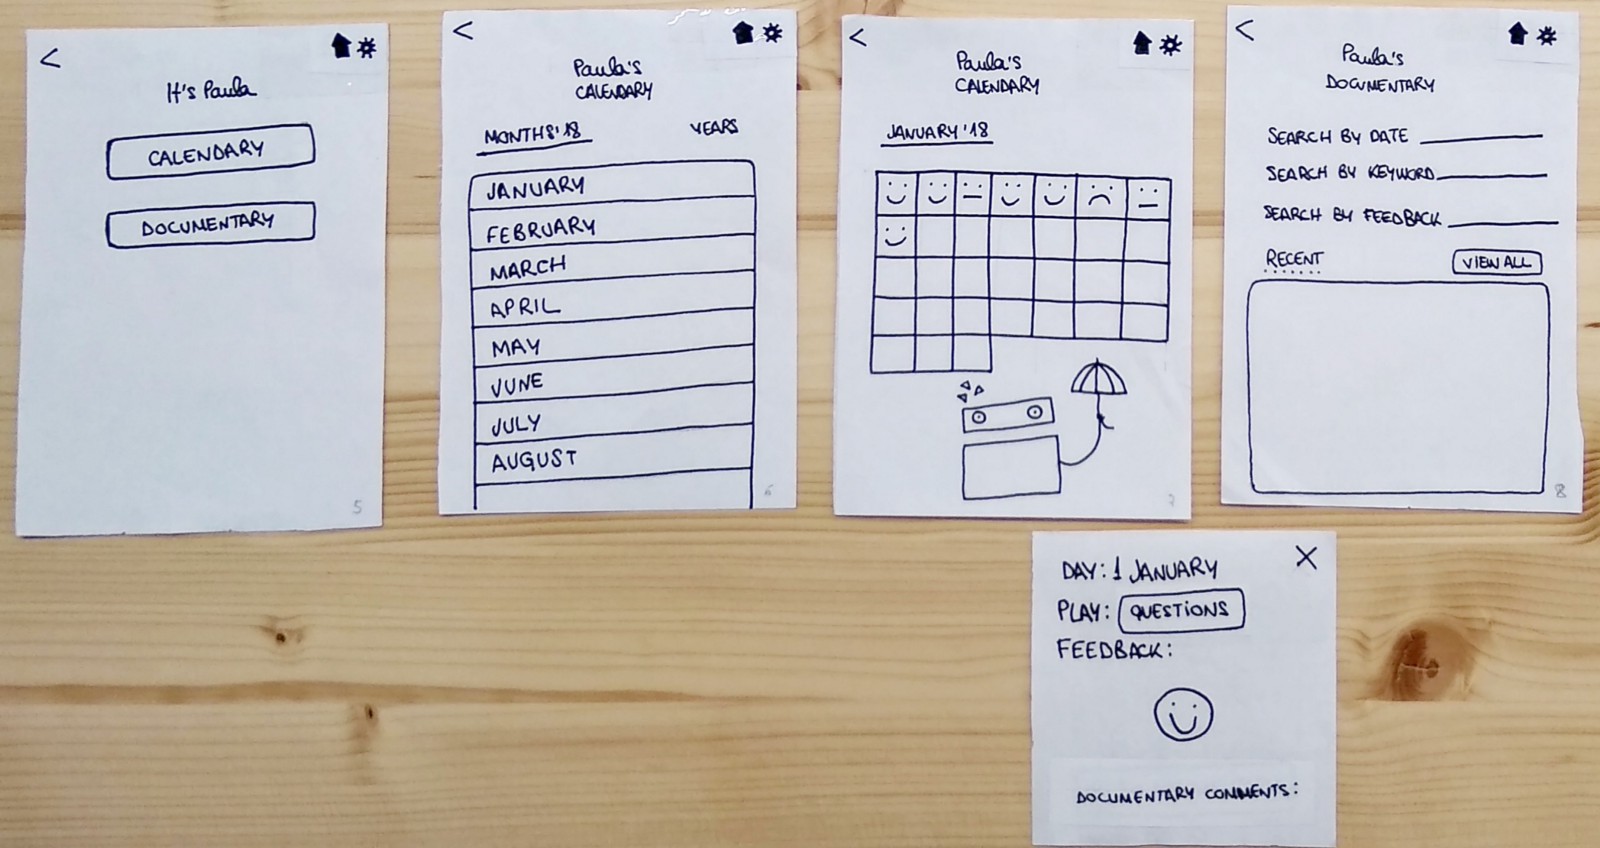 <
It's Paula
CALENDARY
DOCUMENTARY
5
<
Paula's
CALENDARY
MONTHS'18 YEARS
JANUARY
FEBRUARY
MARCH
APRIL
MAY
JUNE
JULY
AUGUST
6
<
Paula's
CALENDARY
JANUARY'18
7
<
Paula's
DOCUMENTARY
SEARCH BY DATE
SEARCH BY KEYWORD
SEARCH BY FEEDBACK
RECENT VIEW ALL
8
DAY: 1 JANUARY X
PLAY: QUESTIONS
FEEDBACK:
DOCUMENTARY COMMENTS: